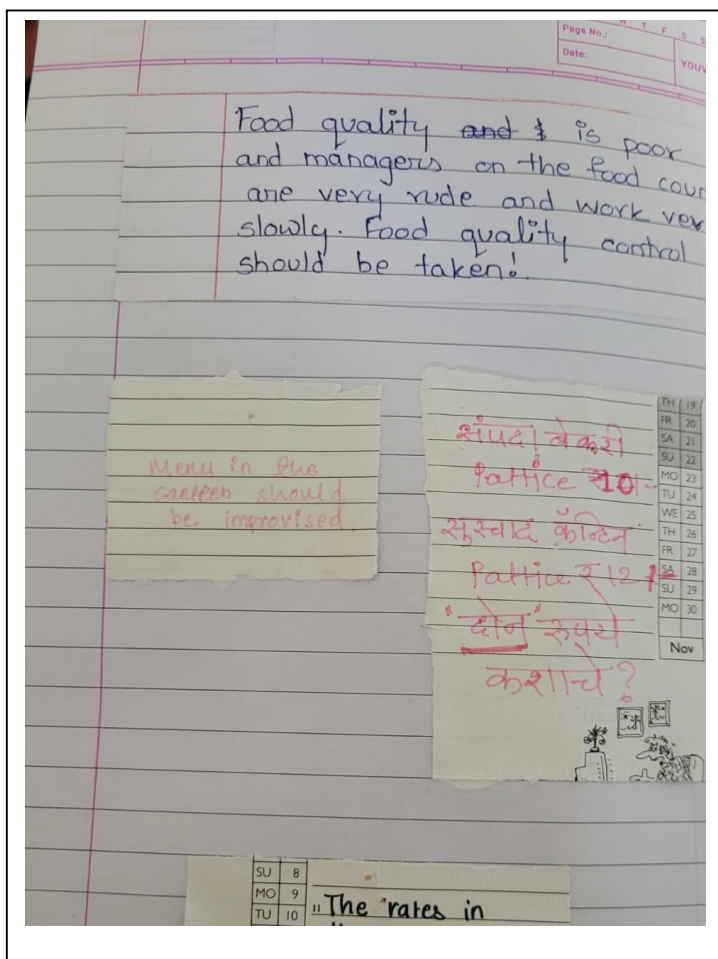 W T F S S
Page No.:
Date:
YOUV
Food quality and & is poor
and managers on the food cour
are very rude and work ver
slowly. Food quality control
should be taken!
Menu in the
canteen should
be improvised.
संपदा बेकरी
Pattice ₹10/-
सुस्वाद कॅन्टिन
Pattice ₹12/-
"दोन" रुपये
कशाचे?
TH 19
FR 20
SA 21
SU 22
MO 23
TU 24
WE 25
TH 26
FR 27
SA 28
SU 29
MO 30
Nov
SU 8
MO 9
TU 10
"The rates in